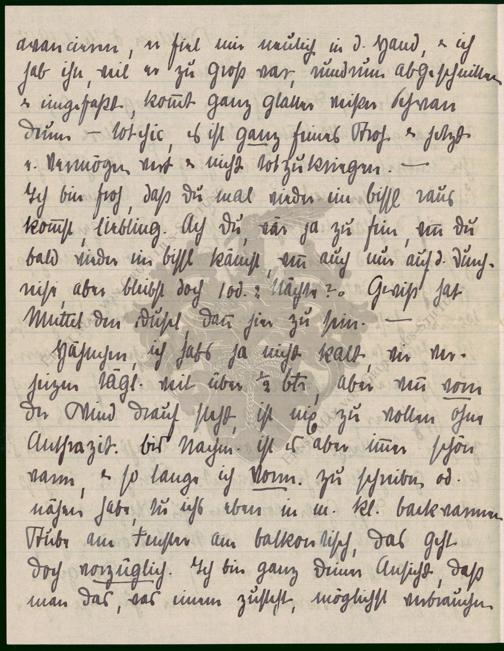 avancieren, er fiel mir neulich in d. Hand, & ich
hab ihn, weil er zu groß war, rundrum abgeschnitten
& eingefaßt, kommt ganz glatter weißer
drum – totchic, es ist ganz feines & jetzt
e. Vermögen wert & nicht totzukriegen. —
Ich bin froh, daß du mal wieder ein bissl raus
kommst, Liebling. Ach du, wär ja zu fein, wenn du
bald wieder ein bissl kämst, wenn auch nur auf d. Durch-
reise, aber bleibst doch 1 od. 2 Nächte? Gewiß hat
Muttel den Dusel, dann hier zu sein. —
ich habs ja nicht kalt, wir ver-
heizen tägl. weit über ½ Ctr., aber wenn vorn
der Wind drauf steht, ist nix zu wollen ohne
Anthrazit. bis Nachm. ist es aber immer schön
warm, & so lange ich vorm. zu schreiben od.
nähen habe, tu ichs eben in m. kl. backwarmen
Stube am Fenster am balkontisch, das geht
doch vorzüglich. Ich bin ganz deiner Ansicht, daß
man das, was einem zusteht, möglichst verbrauchen